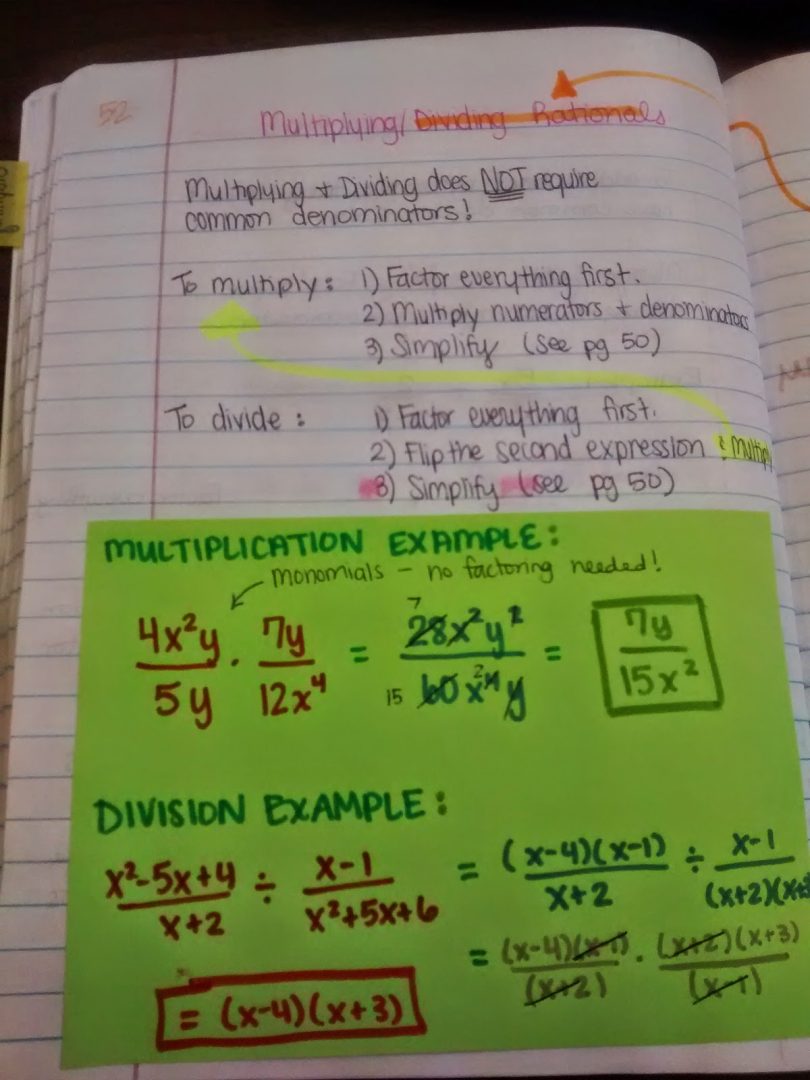 52
Multiplying/Dividing Rationals
Multiplying + Dividing does NOT require
common denominators!
To multiply: 1) Factor everything first.
2) Multiply numerators + denominators
3) Simplify (see pg 50)
To divide: 1) Factor everything first.
2) Flip the second expression & multiply
3) Simplify (see pg 50)
MULTIPLICATION EXAMPLE:
monomials - no factoring needed!
4x²y/5y · 7y/12x⁴ = 7 28x²y²/15 60x⁴ 2 y = 7y/15x²
DIVISION EXAMPLE:
x²-5x+4/x+2 ÷ x-1/x²+5x+6 = (x-4)(x-1)/x+2 ÷ x-1/(x+2)(x+3
= (x-4)(x-1)/(x+2) · (x+2)(x+3)/(x-1)
= (x-4)(x+3)